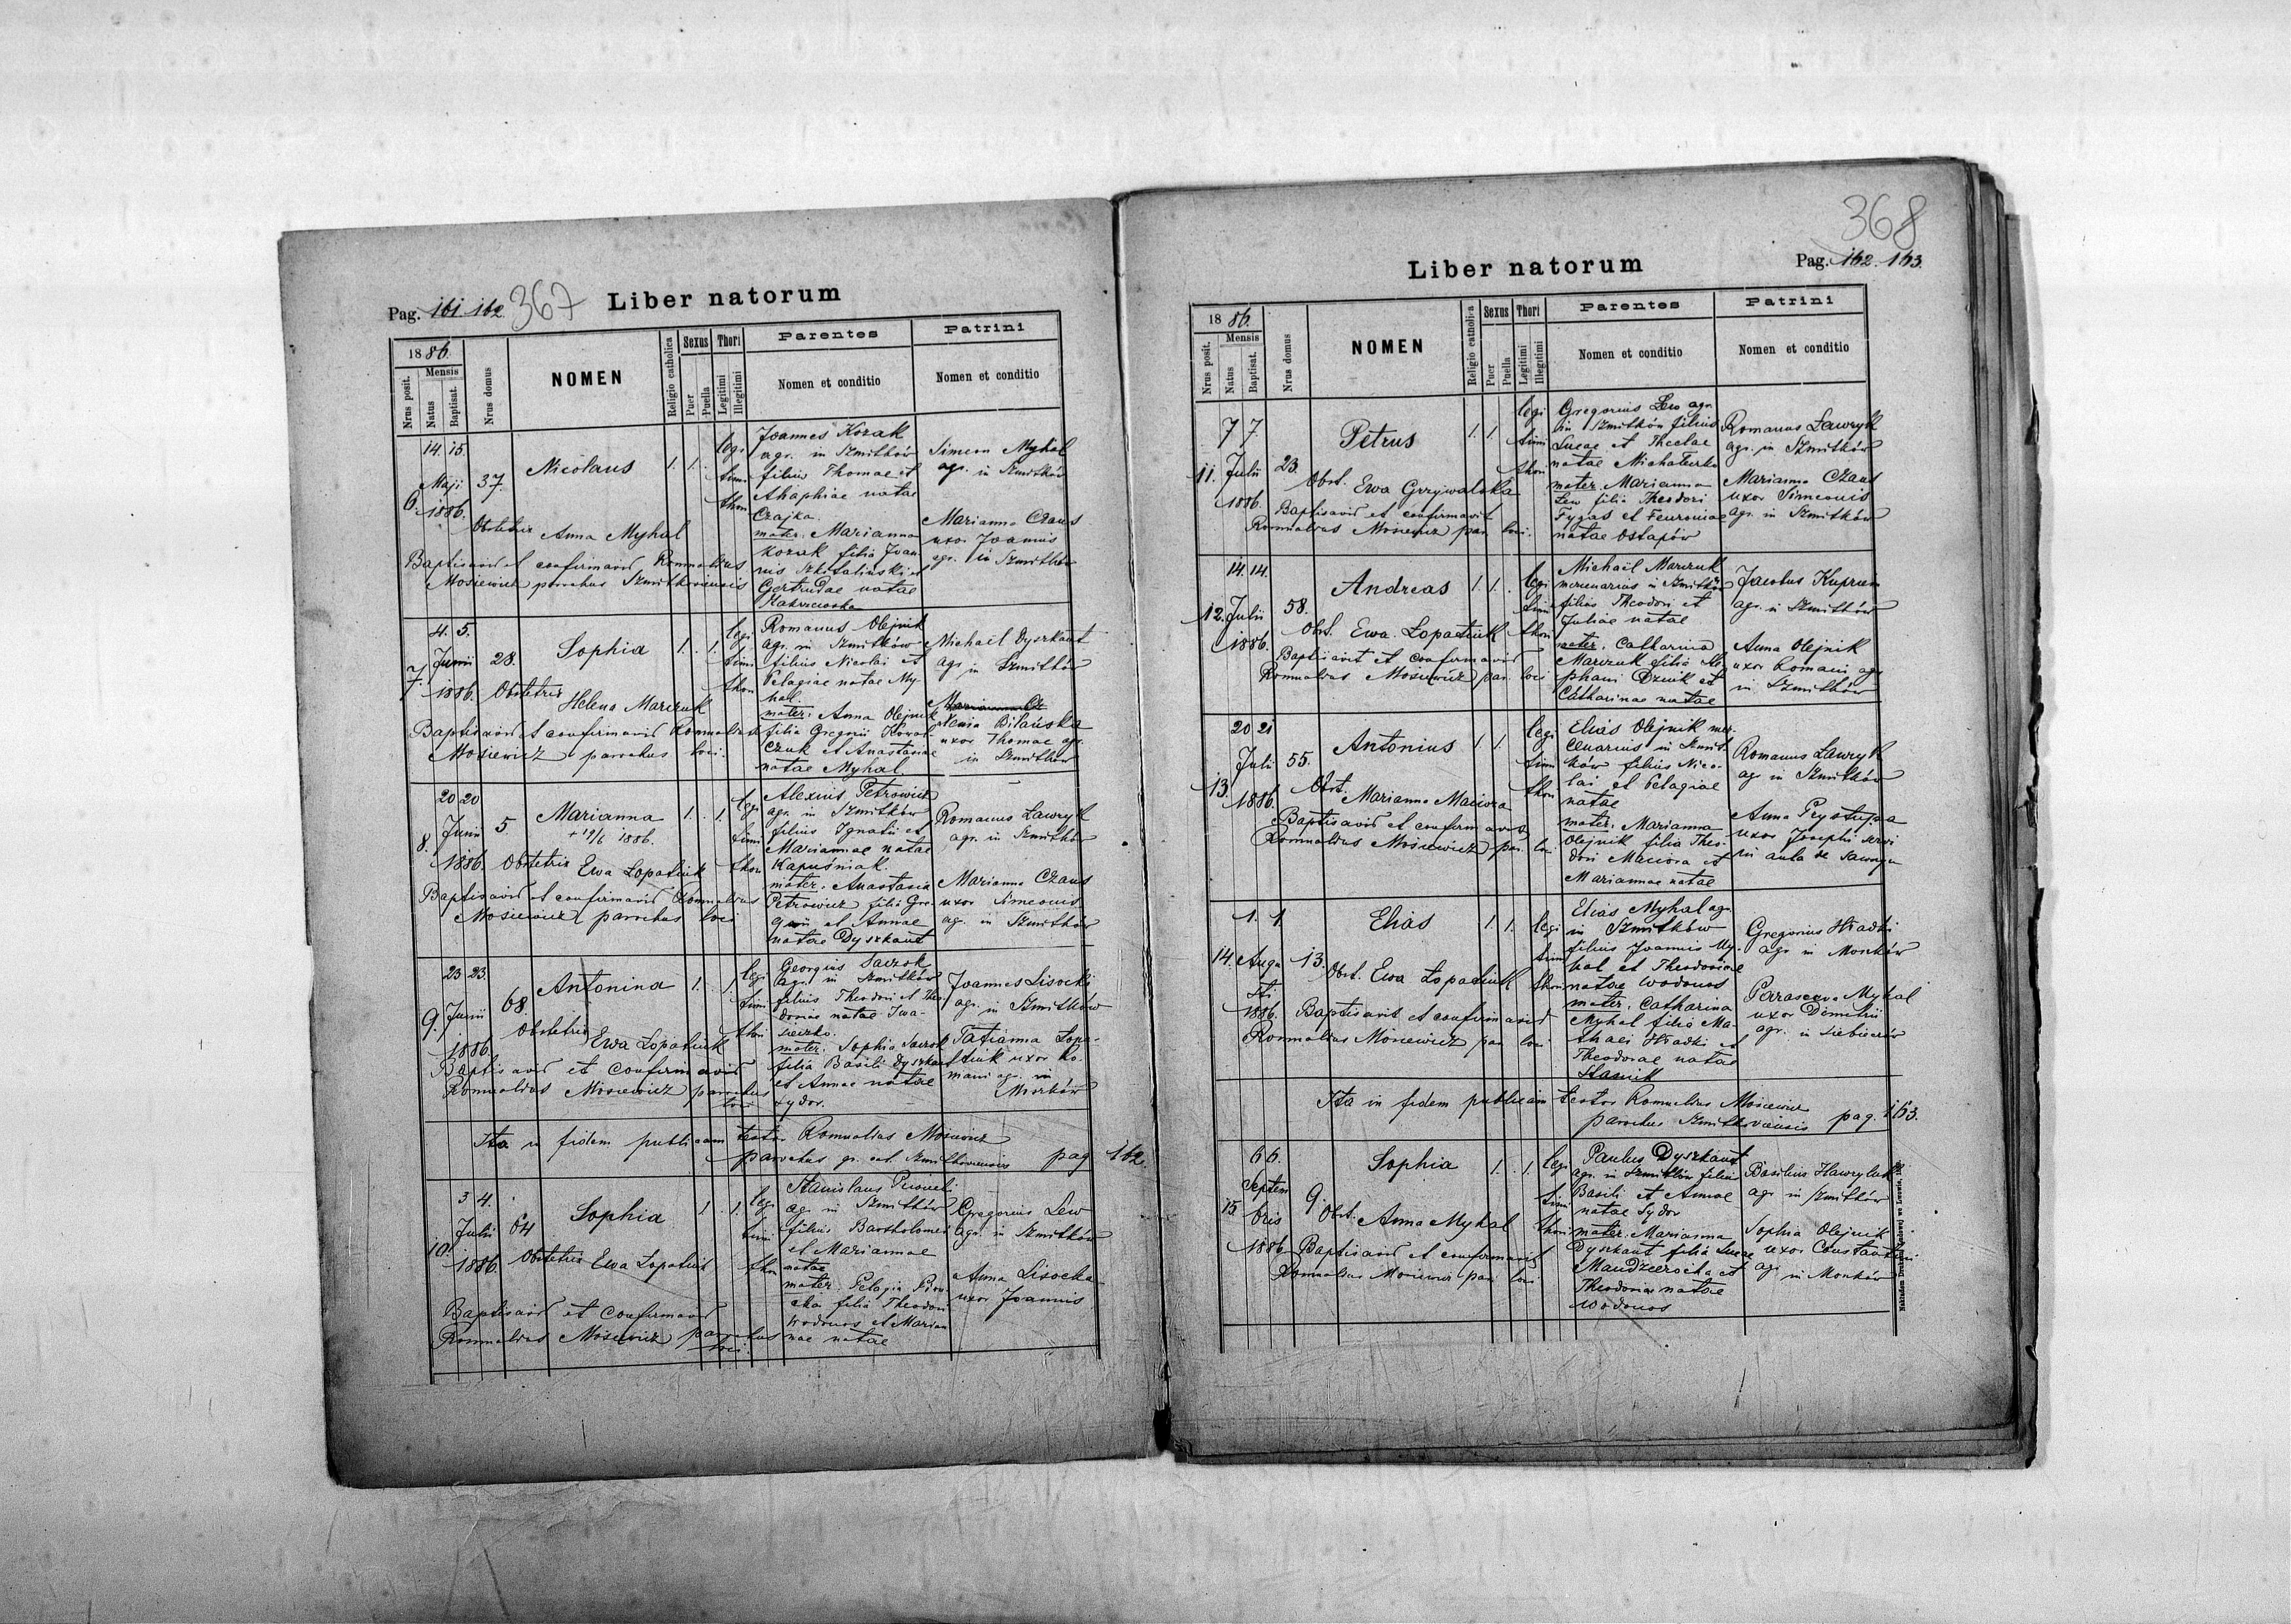 Pag. 161. 162. 367 Liber natorum
1886.
Nrus posit.
Mensis
Natus
Baptisat.
Nrus domus
NOMEN
Religio catholica
Sexus
Puer
Puella
Thori
Legitimi
Illegitimi
Parentes
Nomen et conditio
Patrini
Nomen et conditio
6.
14. 15.
Maji
1886.
37.
Nicolaus
1. 1.
legi
timi
thori
Obstetrix Anna Myhal
Baptisavit et confirmavit Romualdus
Mosiewicz parochus Szmitkoviensis
Joannes Kozak
agr. in Szmitków
filius Thomae et
Ahaphiae natae
Czajka.
mater: Marianna
Kozak filia Joan
nis et
Gertrudae natae
Zakrzewska
Simeon Myhal
agr. in Szmitków
Marianna Czaus
uxor Joannis
agr. in Szmitków
7.
4. 5.
Junii
1886.
28.
Sophia
1. 1.
legi
timi
thori
Obstetrix Helena Marczuk
Baptisavit et confirmavit Romualdus
Mosiewicz parochus loci.
Romanus Olejnik
agr. in Szmitków
filius Nicolai et
Pelagiae natae My-
hal.
mater: Anna Olejnik
filia Gregorii Kowal
czuk et Anastasiae
natae Myhal.
Michael Dyszkant
agr. in Szmitków
Bilańska
uxor Thomae agr.
in Szmitków
8.
20 20
Junii
1886.
5
Marianna
+ 19/6 1886.
1. 1.
legi
timi
thori
Obstetrix Ewa Lopatiuk
Baptisavit et confirmavit Romualdus
Mosiewicz parochus loci
Alexius Petrowicz
agr. in Szmitków
filius Ignatii et
Mariannae natae
Kapuśniak.
mater: Anastasia
Petrowicz filia Gre-
gorii et Annae
natae Dyszkant
Romanus Lawryk
agr. in Szmitków
Marianna Czaus
uxor Simeonis
agr. in Szmitków
9.
23 23.
Junii
1886.
68.
Antonina
1. 1.
legi
timi
thori
Obstetrix Ewa Lopatiuk
Baptisavit et confirmavit
Romualdus Mosiewicz parochus
loci
Georgius Saczok
agr. in Szmitków
filius Theodori et Theo
doriae natae Iwa-
sieczko.
mater: Sophia Saczok
filia Basilii Dyszkant
et Annae natae
Sydor.
Joannes Lisocki
agr. in Szmitków
Tatianna Lopa-
tiuk uxor Ro-
mani agr. in
Morków
Ita in fidem publicam testor Romualdus Mosiewicz
parochus gr. cat. Szmitkoviensis pag 162.
10.
3 4.
Julii
1886.
64
Sophia
1. 1.
legi
timi
thori
Obstetrix Ewa Lopatiuk
Baptisavit et confirmavit
Romualdus Mosiewicz parochus
loci.
Stanislaus
agr. in Szmitków
filius Bartholomei
et Mariannae
natae
mater: Pelagia
filia Theodori
Wodonos et Marian
nae natae
Gregorius Lew
agr. in Szmitków
Anna Lisocka
uxor Joannis
368
Liber natorum
Pag. 162. 163.
1886.
Nrus posit.
Mensis
Natus
Baptisat.
Nrus domus
NOMEN
Religio catholica
Sexus
Puer
Puella
Thori
Legitimi
Illegitimi
Parentes
Nomen et conditio
Patrini
Nomen et conditio
11.
7 7.
Julii
1886.
23.
Petrus
1. 1.
legi
timi
thori
Obst. Ewa Grzywalska
Baptisavit et confirmavit
Romualdus Mosiewicz par. loci.
Gregorius Lew agr.
in Szmitków filius
Lucae et Theclae
natae
mater: Marianna
Lew filia Theodori
Fygas et Feuroniae
natae Ostapów
Romanus Lawryk
agr. in Szmitków
Marianna Czaus
uxor Simeonis
agr. in Szmitków
12.
14. 14.
Julii
1886.
58.
Andreas
1. 1.
legi
timi
thori
Obst. Ewa Lopatiuk
Baptisavit et confirmavit
Romualdus Mosiewicz par. loci
Michael Marczuk
mercenarius in Szmitków
filius Theodori et
Juliae natae
mater: Catharina
Marczuk filia Ste
phani Dziuk et
Catharinae natae
Jacobus Kuprien
agr. in Szmitków
Anna Olejnik
uxor Romani agr.
in Szmitków
13.
20 21
Julii
1886.
55.
Antonius
1. 1.
legi
timi
thori
Obst. Marianna Maciora
Baptisavit et confirmavit
Romualdus Mosiewicz par. loci
Elias Olejnik mer-
cenarius in Szmit-
ków filius Nico-
lai et Pelagiae
natae
mater: Marianna
Olejnik filia Theo-
dori Maciora et
Mariannae natae
Romanus Lawryk
agr. in Szmitków
Anna Prystupa
uxor Josephi servi
in aula de
14.
1. 1.
Augu
sti
1886.
13.
Elias
1. 1.
legi
timi
thori
Obst. Ewa Lopatiuk
Baptisavit et confirmavit
Romualdus Mosiewicz par. loci
Elias Myhal agr.
in Szmitków
filius Joannis My-
hal et Theodoriae
natae Wodonos
mater: Catharina
Myhal filia Ma-
thaei Hładki et
Theodorae natae
Stasiuk
Gregorius Hładki
agr. in Morków
Parasceva Myhal
uxor Demetrii
agr. in Siebieczów
Ita in fidem publicam testor Romualdus Mosiewicz
parochus Szmitkoviensis pag. 163.
15.
6 6.
Septem
bris
1886
9
Sophia
1. 1.
legi
timi
thori
Obst. Anna Myhal
Baptisavit et confirmavit
Romualdus Mosiewicz par. loci
Paulus Dyszkant
agr. in Szmitków filius
Basilii et Annae
natae Sydor
mater: Marianna
Dyszkant filia Lucae
et
Theodoriae natae
Wodonos
Basilius Hawryluk
agr. in Szmitków
Sophia Olejnik
uxor Constantini
agr. in Morków